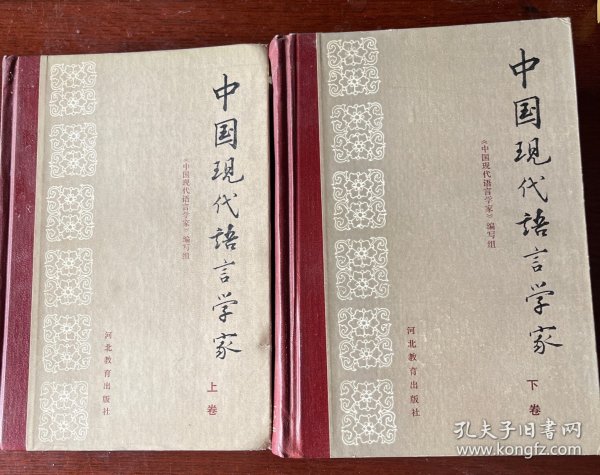 中国现代语言学家
《中国现代语言学家》编写组
河北教育出版社
上卷
中国现代语言学家
《中国现代语言学家》编写组
河北教育出版社
下卷
孔夫子旧书网
www.kongfz.com